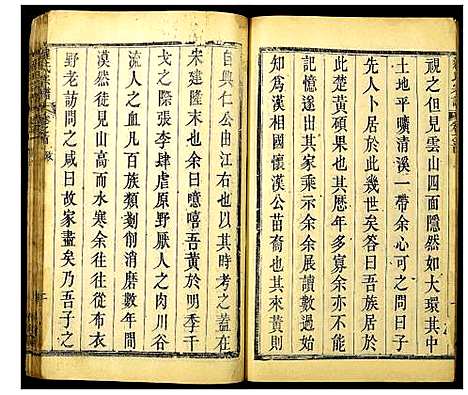 視之但見雲山四面隱然如大環其中
土地平曠清溪一帶余心可之曰此吾
先人卜居於此幾世矣答曰居於
此楚黃碩果也其歷年多寡余亦不能
記憶遂出其家乘示余余展讀數過始
知為相國懷漢公苗裔也其來黃則
自興仁公由江右時考之蓋在
宋建隆末也余曰噫嘻吾黃於明季干
戈之際張李肆虐原野厭人之肉川谷
流人之血凡百族類剗削消磨數年間
漠然徒見山高而水寒余往往從故
野老訪問之咸曰故家盡矣乃吾子之